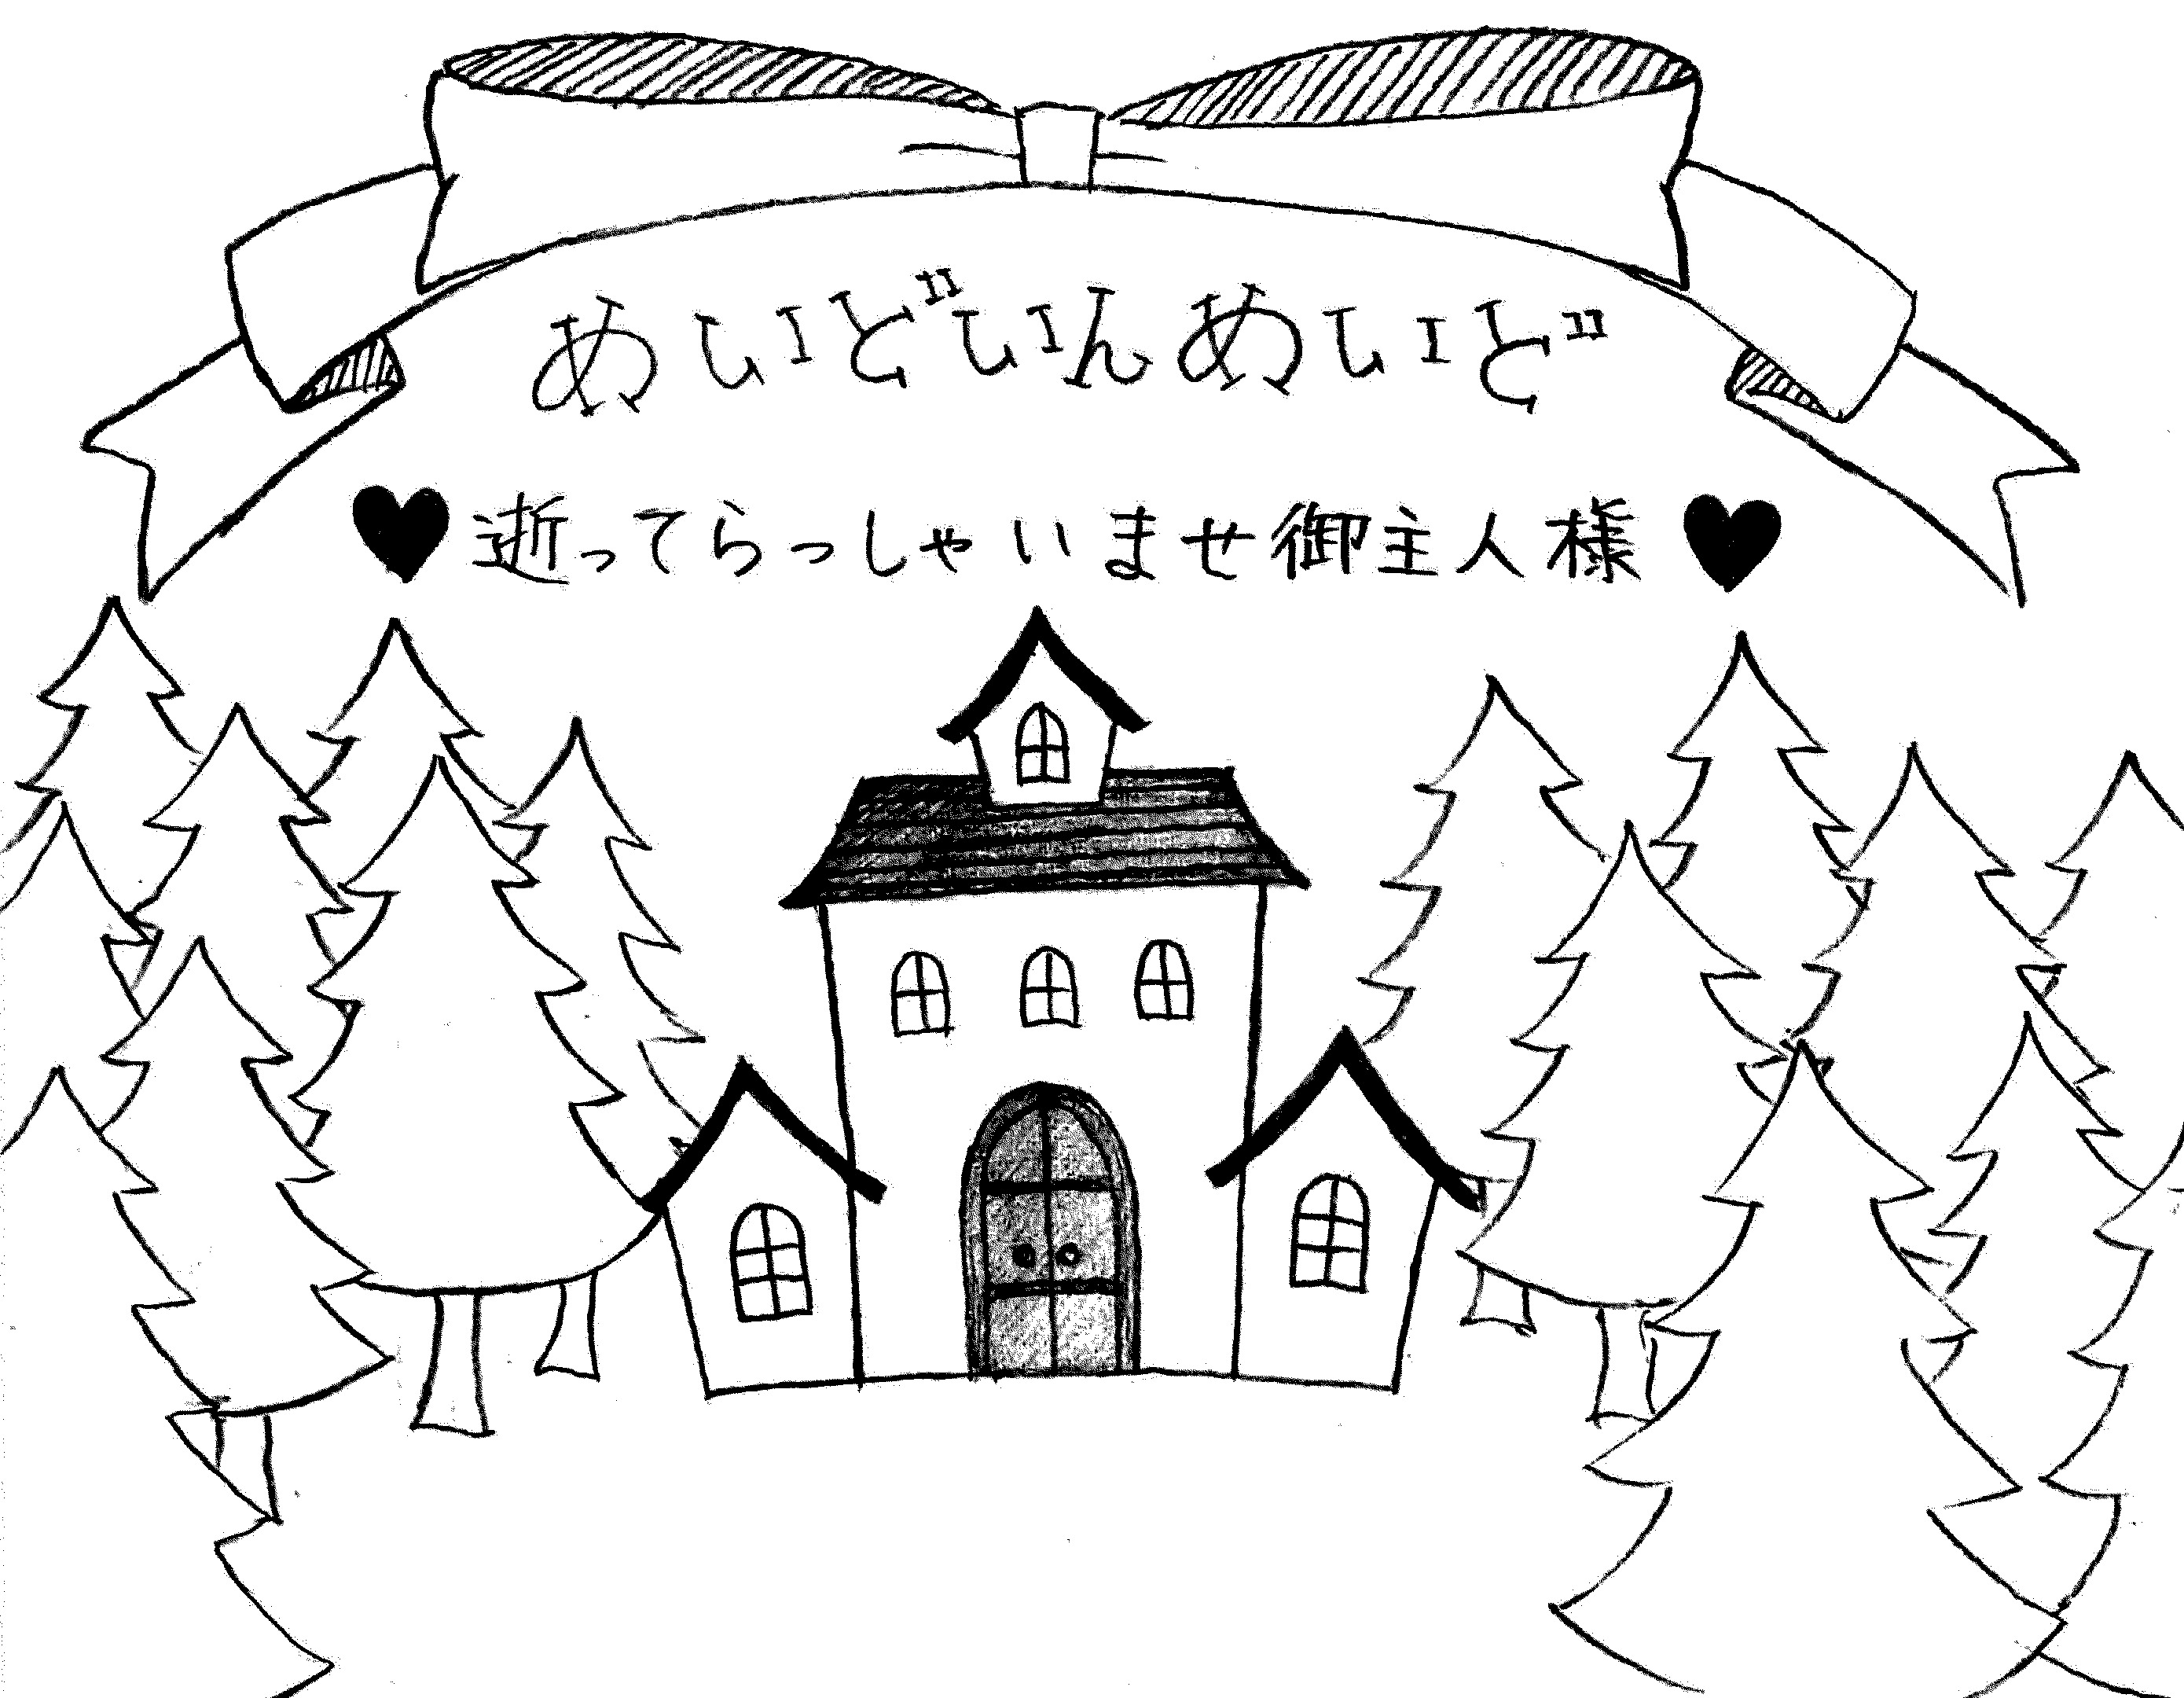 めいどいんめいど
♥逝ってらっしゃいませ御主人様♥